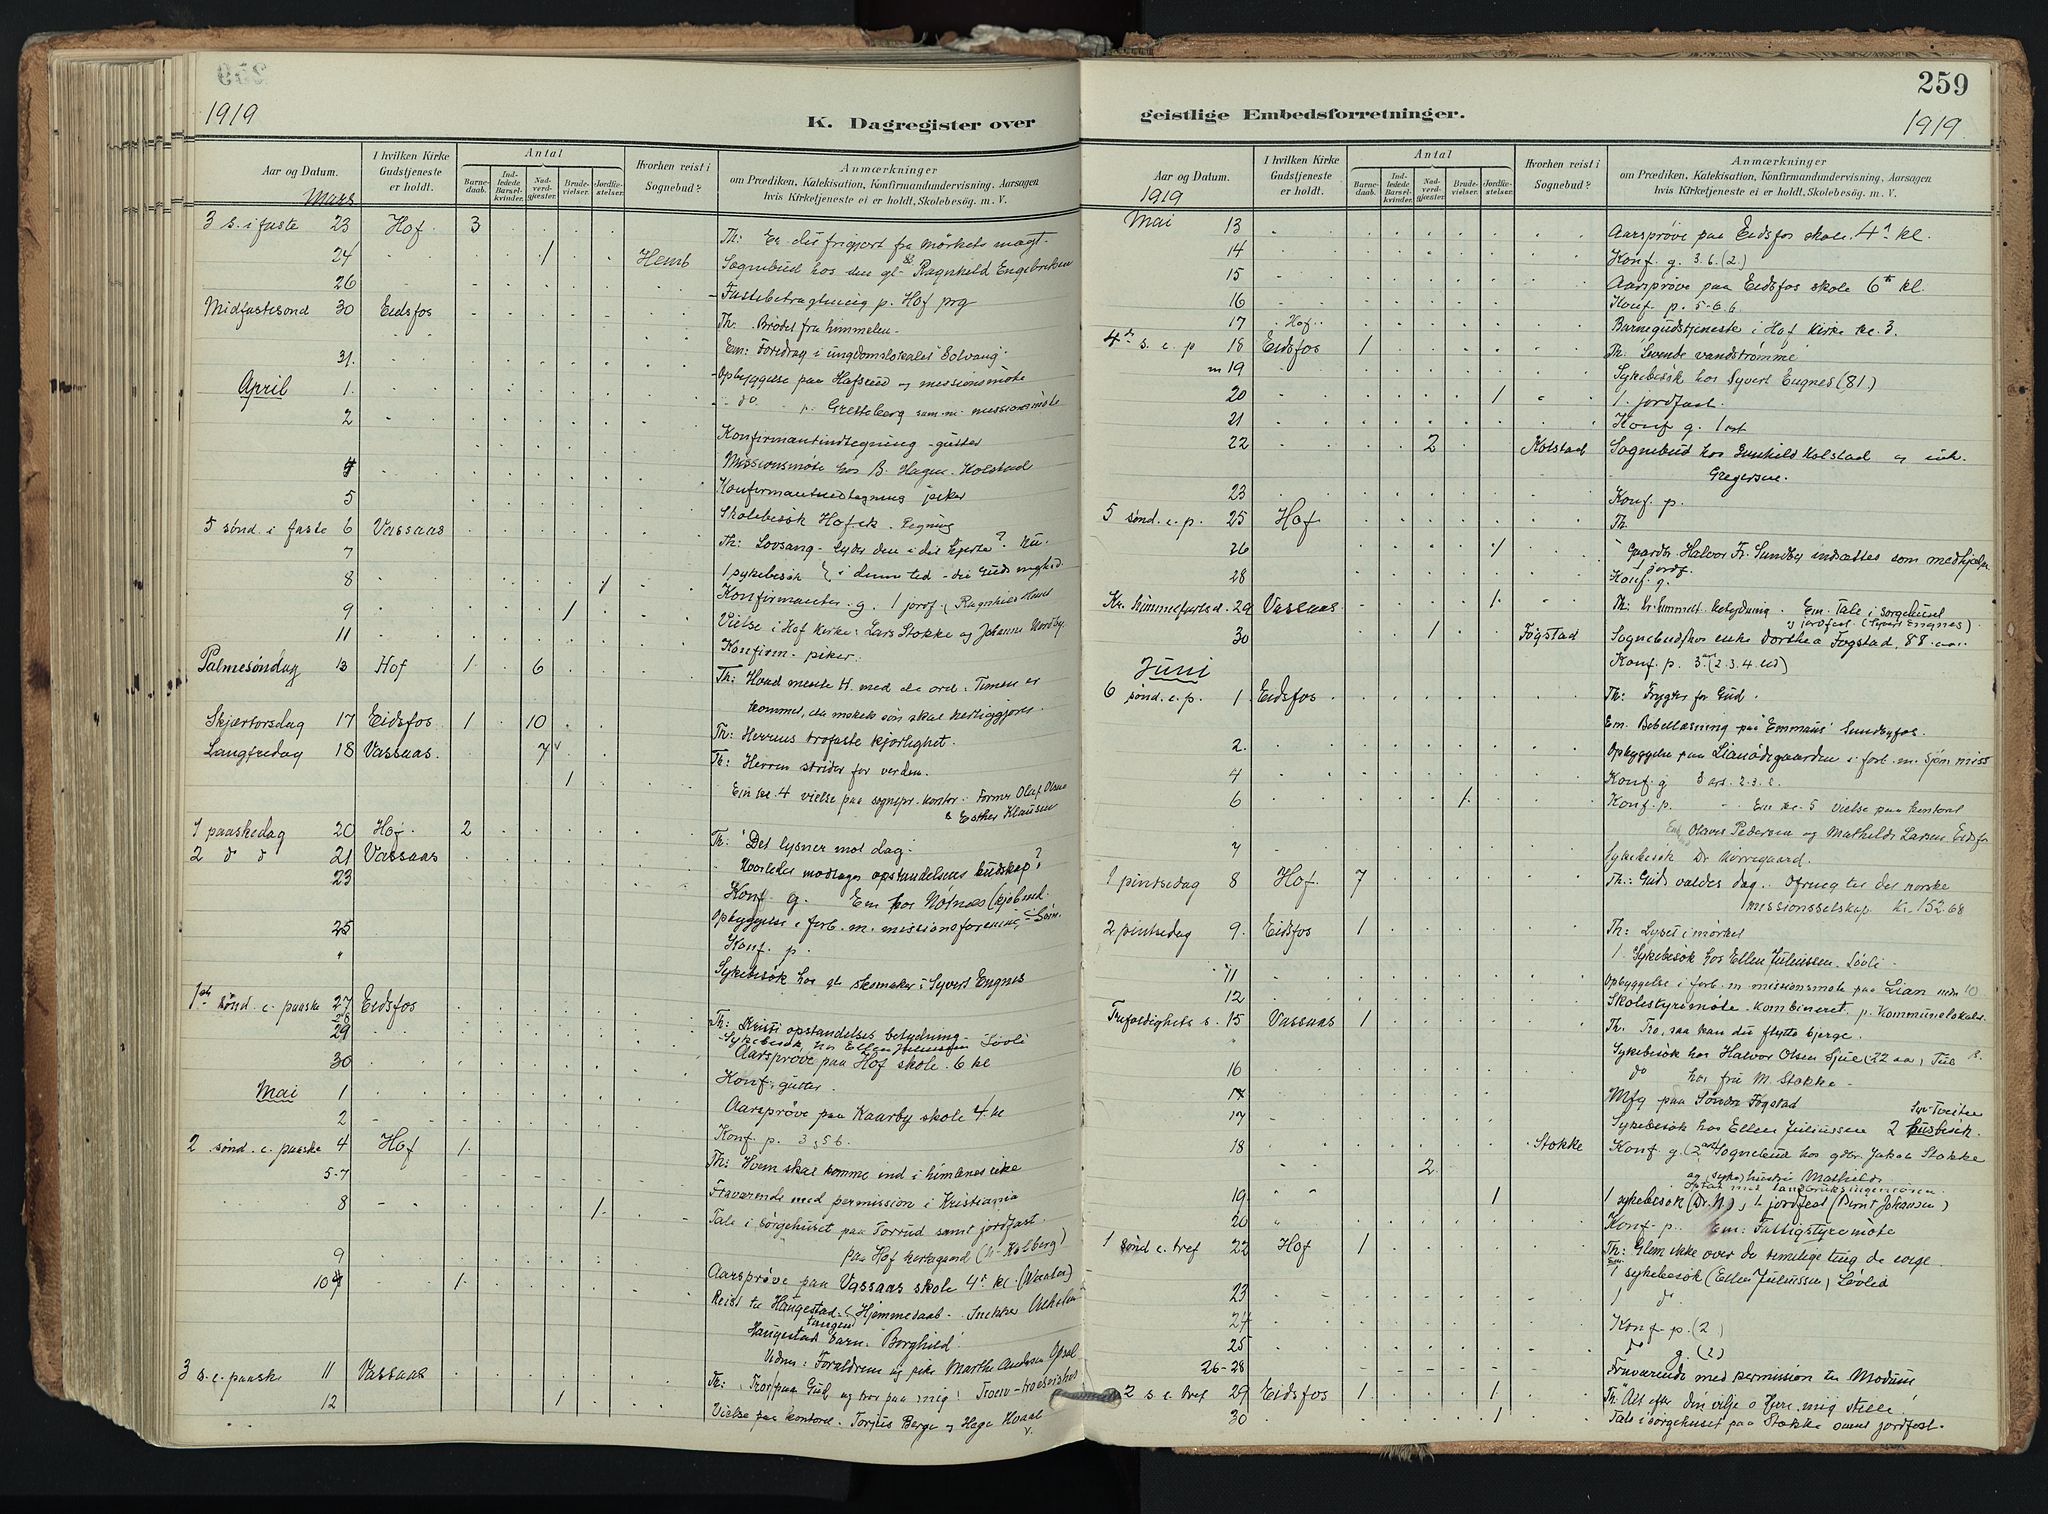 259
1919
K. Dagregister over
Aar og Datum.
I hvilken Kirke Gudstjeneste er holdt.
Antal
Barnedaab.
Indledede Barselkvinder.
Nadverdgjæster.
Brudevielser.
Jordfæstelser.
Hvorhen reist i Sognebud?
Anmærkninger
om Prædiken, Katekisation, Konfirmandundervisning, Aarsagen
hvis Kirketjeneste ei er holdt, Skolebesøg. m. V.
Mars
3 s. i faste 23 Hof. 3 Th: Er du frigjort fra mørkets magt.
24 1 Hemb Sognebud hos den gl. Ragnhild Engebretsen
26 Fastebetragtning p. Hof prg
Midfastesønd 30 Eidsfos Th: Brødet fra himmelen
Em: Foredrag i ungdomslokalet "Solvang"
31. Opbyggelse paa Hafsrud og missionsmøte
April 1. do p. Gretteberg sam. m. missionsmøte
2 Konfirmantindtegning - gutter
4 Missionsmøte hos B. Hagen Holstad
Konfirmantindtegning piker
5 Skolebesøk Hof sk. Tegning
5 sønd. i faste 6 Vassaas Th: Lovsang - lyder den i dit hjerte?
7 1 sykebesøk
8 1 Konfirmanter g. 1 jordf.
9 1 Vielse i Hof Kirke: Lars Stokke og Johanne Nordby
11 Konfirm. piker
Palmesøndag 13 Hof 1 6 Th: Hvad mente H. med de ord: Timen er
kommet, da menneskens søn skal herliggjøres
Skjærtorsdag 17 Eidsfos 1 10 Th: Herrens trofaste kjærlighet.
Langfredag 18 Vassaas 7 Th: Herren strider for verden.
1 Em kl. 4 vielse paa sognepr. kontor: Former Olaf Olsen
& Esther Klausen
1 paaskedag 20 Hof. 2 Th: Det lysner mot dag.
2 d d 21 Vassaas Hvorledes modtages opstandelsens budskap?
23 Konf. g. Em hos Nøtnes
Opbyggelse i forb. m. missionsforening
25 Konf. p.
Sykebesøk hos gl. skomaker Syvert Engnes
1ste sønd. e. paaske 27 Eidsfos Th: Kristi opstandelses betydning
28 Sykebesøk hos Ellen Juliussen Løvli
29 Aarsprøve paa Hof skole. 6 kl
30 Konf. gutter.
Mai 1 Aarsprøve paa Kaarby skole 4 kl
2 Konf. p. 3 5 6.
2 sønd. e. paaske 4 Hof 1. Th: Hvem skal komme ind i himlenes rike
5-7 Fraværende med permission i Kristiania
8 1. Tale i sørgehuset paa Torrud samt jordfast.
paa Hof kirkegaard
9 Aarsprøve paa Vassaas skole 4de kl.
10 1. Reist til Haugestad Hjemmedaab - Snekker
Haugestad barn "Borghild"
Vidner: Forældrene og pike Marthe Andersen
3 s. e. paaske 11 Vassaas Th: Tror paa Gud og tror paa mig!
12 1 Vielse paa kontoret. Torjus Berge og Hege Hvaal
259
1919
geistlige Embedsforretninger.
Aar og Datum.
I hvilken Kirke Gudstjeneste er holdt.
Antal
Barnedaab.
Indledede Barselkvinder.
Nadverdgjæster.
Brudevielser.
Jordfæstelser.
Hvorhen reist i Sognebud?
Anmærkninger
om Prædiken, Katekisation, Konfirmandundervisning, Aarsagen
hvis Kirketjeneste ei er holdt, Skolebesøg. m. V.
1919
Mai 13 Aarsprøve paa Eidsfos skole. 4de kl.
14 Konf. g. 3.6. (2.)
15 Aarsprøve paa Eidsfos skole 6te kl.
16 Konf. p. 5-6.6.
17 Hof. Barnegudstjeneste i Hof Kirke kl. 3.
4de s. e. p 18 Eidsfos 1 Th: "Levende vandstrømme"
m 19 Sykebesøk hos Syvert Engnes (81.)
20 1 1. jordfast.
21 Konf g.
22 2 Kolstad Sognebud hos Gunhild Kolstad og enk.
Gregersen.
23 Konf. p.
5 sønd. e. p. 25 Hof Th.
26 1 Gaardbr. Halvor Fr. Sundby indsættes som medhjælper
jordf.
28 Konf. g.
Kr. himmelfartsd. 29 Vassaas 1. Th: Kr. himmelf. betydning. Em. Tale i sørgehuset
og jordfast. (Syvert Engnes).
30 1 Føgstad Sognebud hos enke Dorthea Føgstad, 88 aar.
Konf. p. 3 (2.3.4. bud)
Juni
6 sønd. e. p. 1 Eidsfos Th: Frygter for Gud.
Em. Bibellæsning paa "Emmaus" Sundbyfos.
2. Opbyggelse paa Lianødegaarden i forb. m. Sjøm. miss
4 Konf. g 3 art. 2.3.2.
6 1. Konf. p. Em kl. 5 Vielse paa kontoret
Olaves Pedersen og Mathilde Larsen, Eidsfos
7 Sykebesøk Dr Nørregaard.
1 pintsedag 8 Hof. 7 Th: Guds vældes dag. Ofring til det norske
missionsselskap. Kr. 152.68
2 pintsedag 9. Eidsfos 1 Th: Lyset i mørket
1. Sykebesøk hos Ellen Juliussen. Løvli.
11 Opbyggelse i forb. m. missionsmøte paa Lian
12 Skolestyremøte. Kombineret. p. Kommunelokalet
Trefoldighets s. 15 Vassaas 1 Th. Tro, saa kan du flytte bjerge.
Sykebesøk hos Halvor Olsen Sjue (22 aar)
16 do hos fru M. Stokke
17 Mfg paa Søndre Føgstad
17 Sykebesøk hos Ellen Juliussen 2 husbesøk.
18 2 Stokke Konf g. Sognebud hos gdbr. Jakob Stokke
og syke hustru Mathilde
19 1 1 sykebesøk (Dr. N), 1 jordfest (Bernt Johansen)
20 Konf p. Em: Fattigstyremøte
1 sønd e. tref 22 Hof 1 Th: Glem ikke over de timelige ting de evige.
Em 1 sykebesøk (Ellen Juliussen) Løvlid
23 1 do
24 Konf p. (2.)
25 do g. (2)
26-28 Fraværende med permission til Modum
2 s. e. tref 29 Eidsfos 1 1 Th: "Alt efter din vilje o Herre mig stelle"
30 1 Tale i sørgehuset paa Stokke samt jordfest.